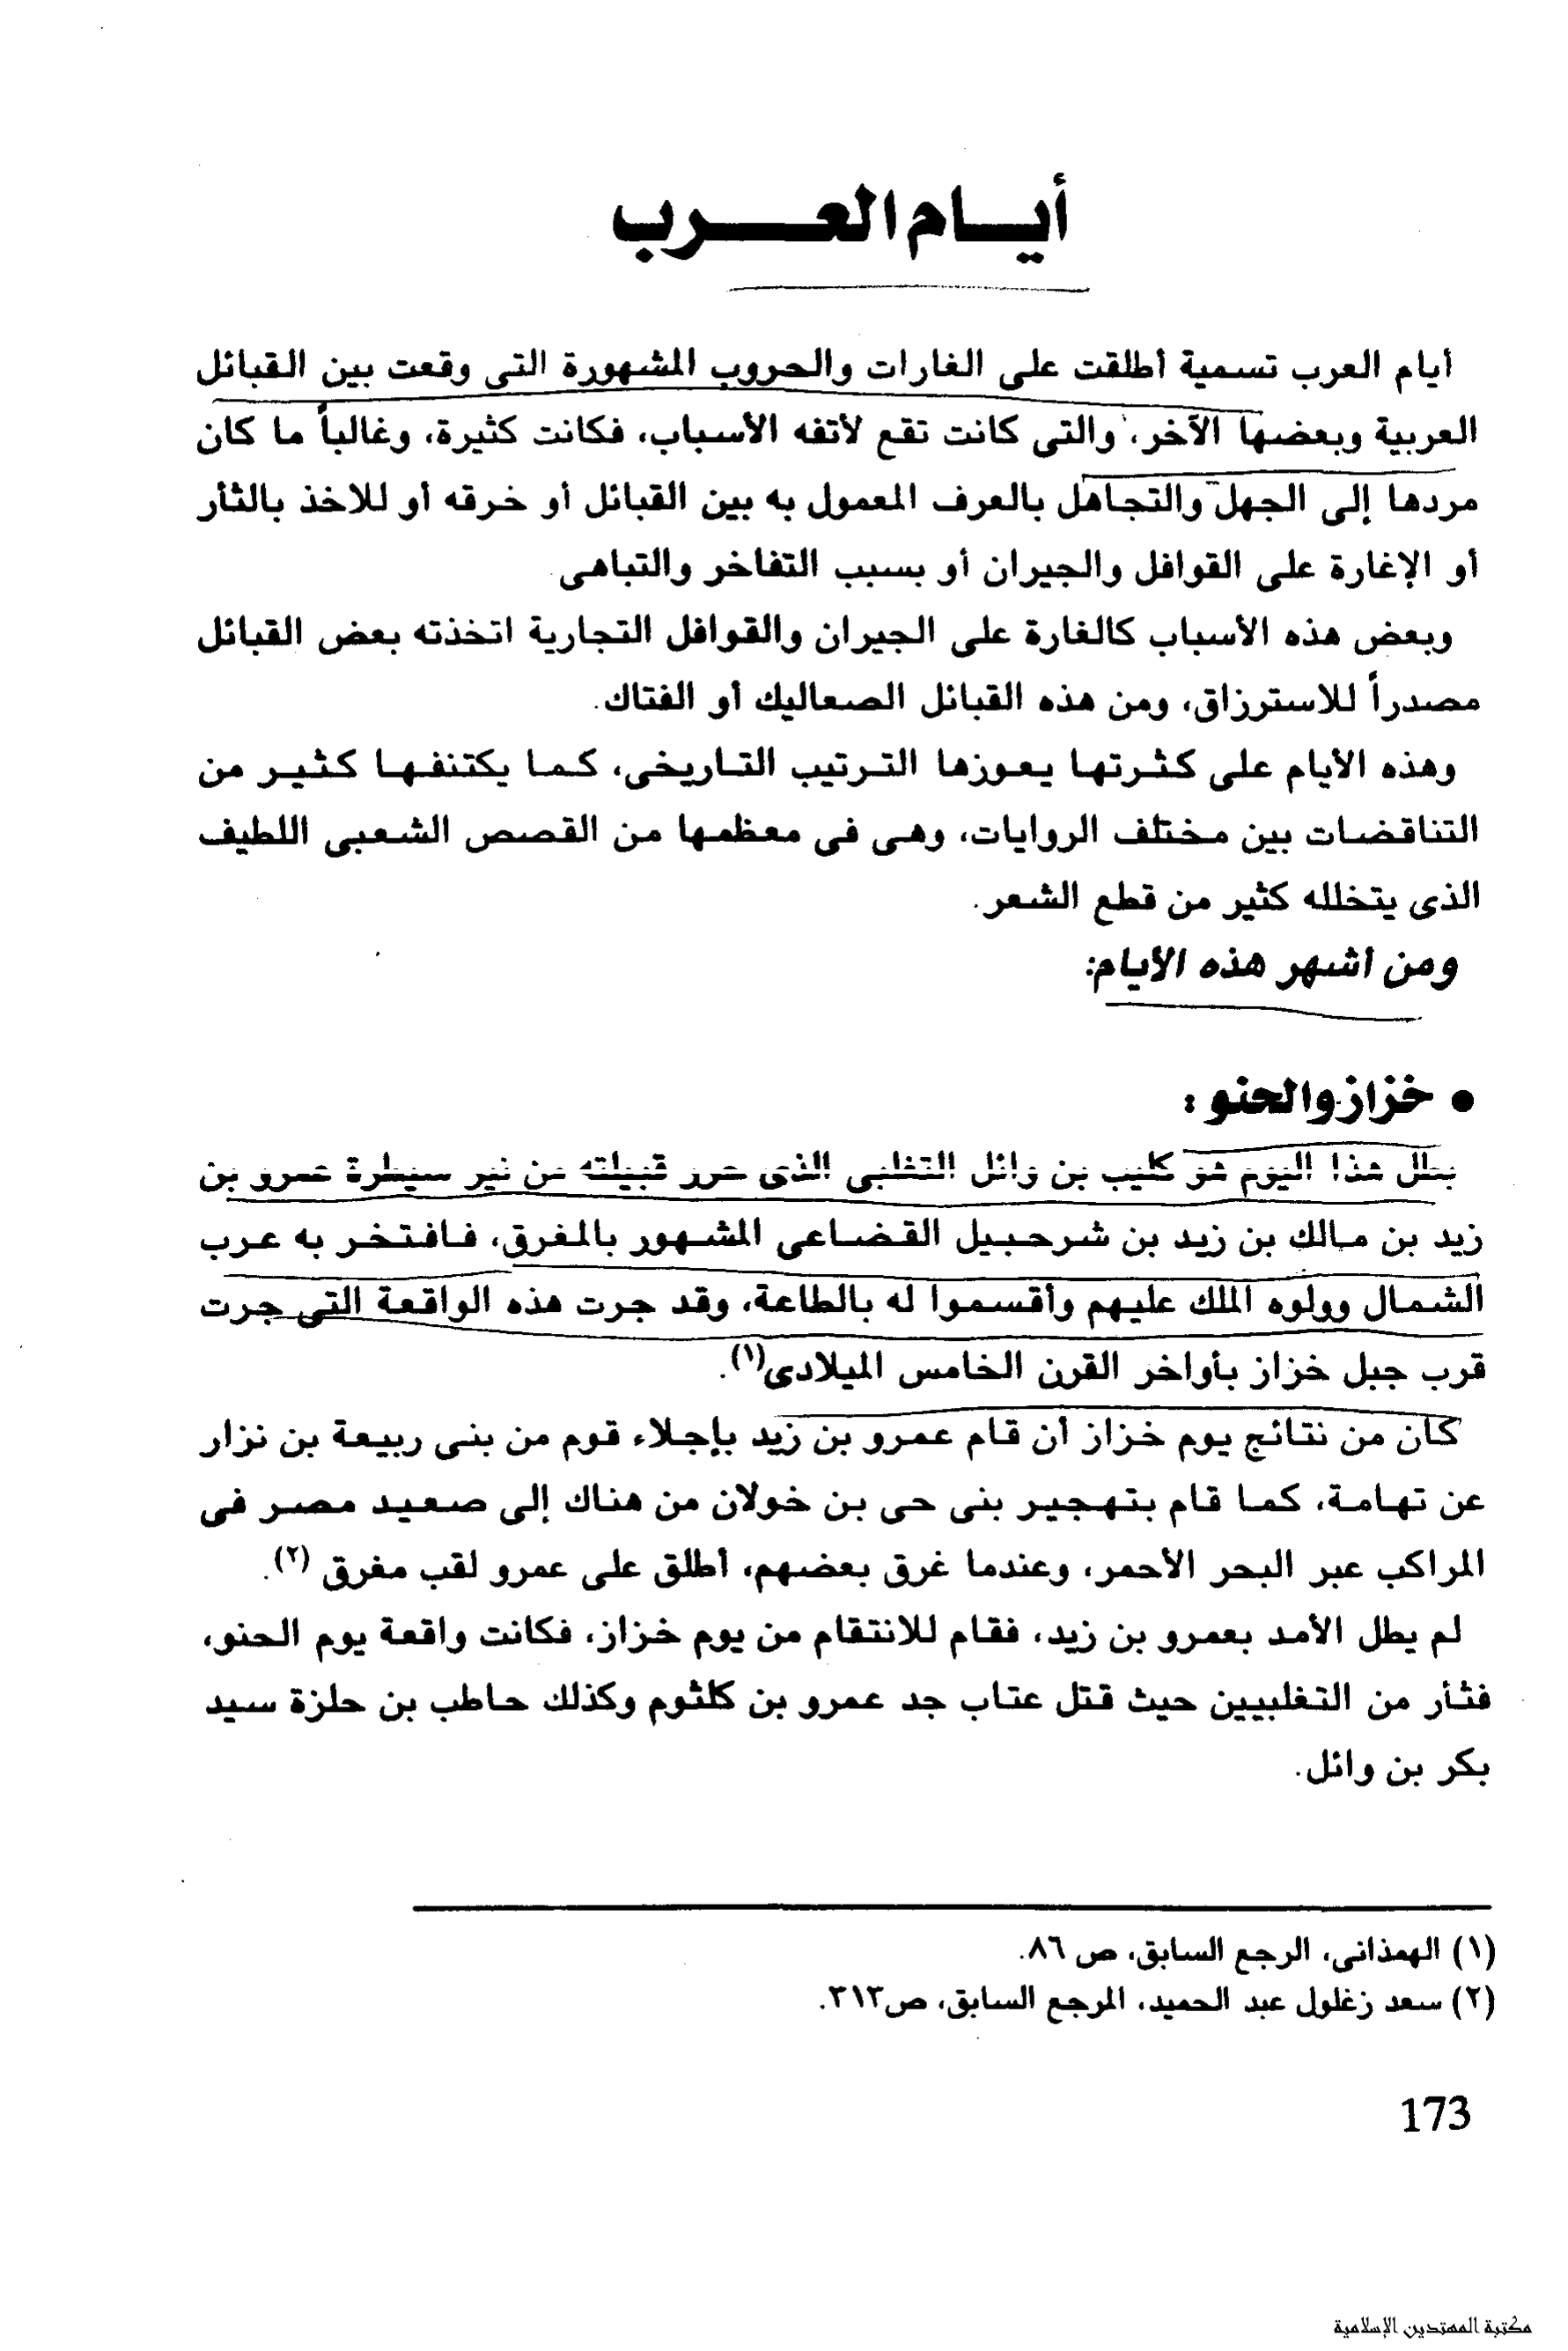 أيـــام العـــــرب
أيام العرب تسمية أطلقت على الغارات والحروب المشهورة التى وقعت بين القبائل
العربية وبعضها الآخر، والتى كانت تقع لأتفه الأسباب، فكانت كثيرة، وغالباً ما كان
مردها إلى الجهل والتجاهل بالعرف المعمول به بين القبائل أو خرقه أو للاخذ بالثأر
أو الإغارة على القوافل والجيران أو بسبب التفاخر والتباهى
وبعض هذه الأسباب كالغارة على الجيران والقوافل التجارية اتخذته بعض القبائل
مصدراً للاسترزاق، ومن هذه القبائل الصعاليك أو الفتاك.
وهذه الأيام على كثرتها يعوزها الترتيب التاريخى، كما يكتنفها كثير من
التناقضات بين مختلف الروايات، وهى فى معظمها من القصص الشعبى اللطيف
الذى يتخلله كثير من قطع الشعر.
ومن أشهر هذه الأيام:
● خزاز والحنو :
بطل هذا اليوم هو كليب بن وائل التغلبى الذى حرر قبيلته من نير سيطرة عمرو بن
زيد بن مالك بن زيد بن شرحبيل القضاعى المشهور بالمغرق، فافتخر به عرب
الشمال وولوه الملك عليهم وأقسموا له بالطاعة، وقد جرت هذه الواقعة التى جرت
قرب جبل خزاز بأواخر القرن الخامس الميلادى(١).
كان من نتائج يوم خزاز أن قام عمرو بن زيد بإجلاء قوم من بنى ربيعة بن نزار
عن تهامة، كما قام بتهجير بنى حى بن خولان من هناك إلى صعيد مصر فى
المراكب عبر البحر الأحمر، وعندما غرق بعضهم، أطلق على عمرو لقب مغرق (٢).
لم يطل الأمد بعمرو بن زيد، فقام للانتقام من يوم خزاز، فكانت واقعة يوم الحنو،
فثأر من التغلبيين حيث قتل عتاب جد عمرو بن كلثوم وكذلك حاطب بن حلزة سيد
بكر بن وائل.
(١) الهمذانى، الرجع السابق، ص ٨٦.
(٢) سعد زغلول عبد الحميد، المرجع السابق، ص٣١٣.
173
مكتبة المهتدين الإسلامية